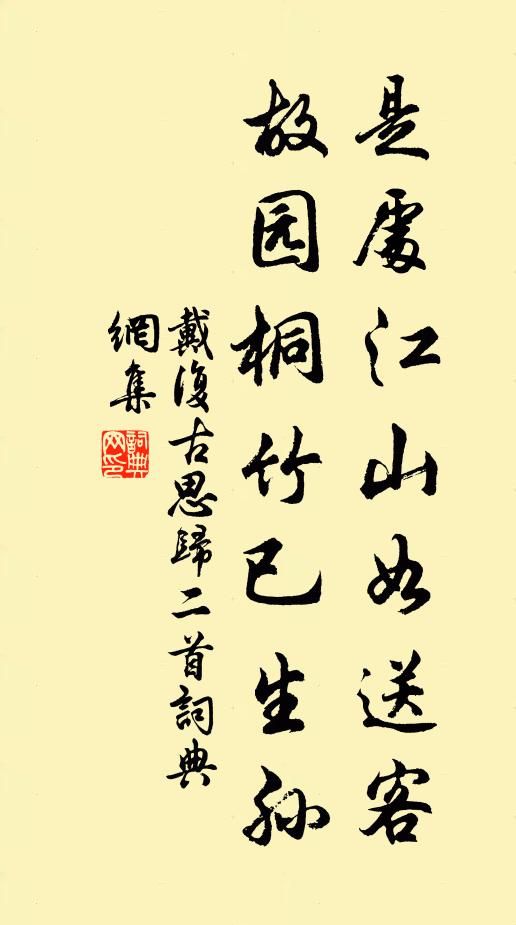 是處江山如送客
故园桐竹已生孙
戴復古思歸二首詞典
網集
詞典
网印